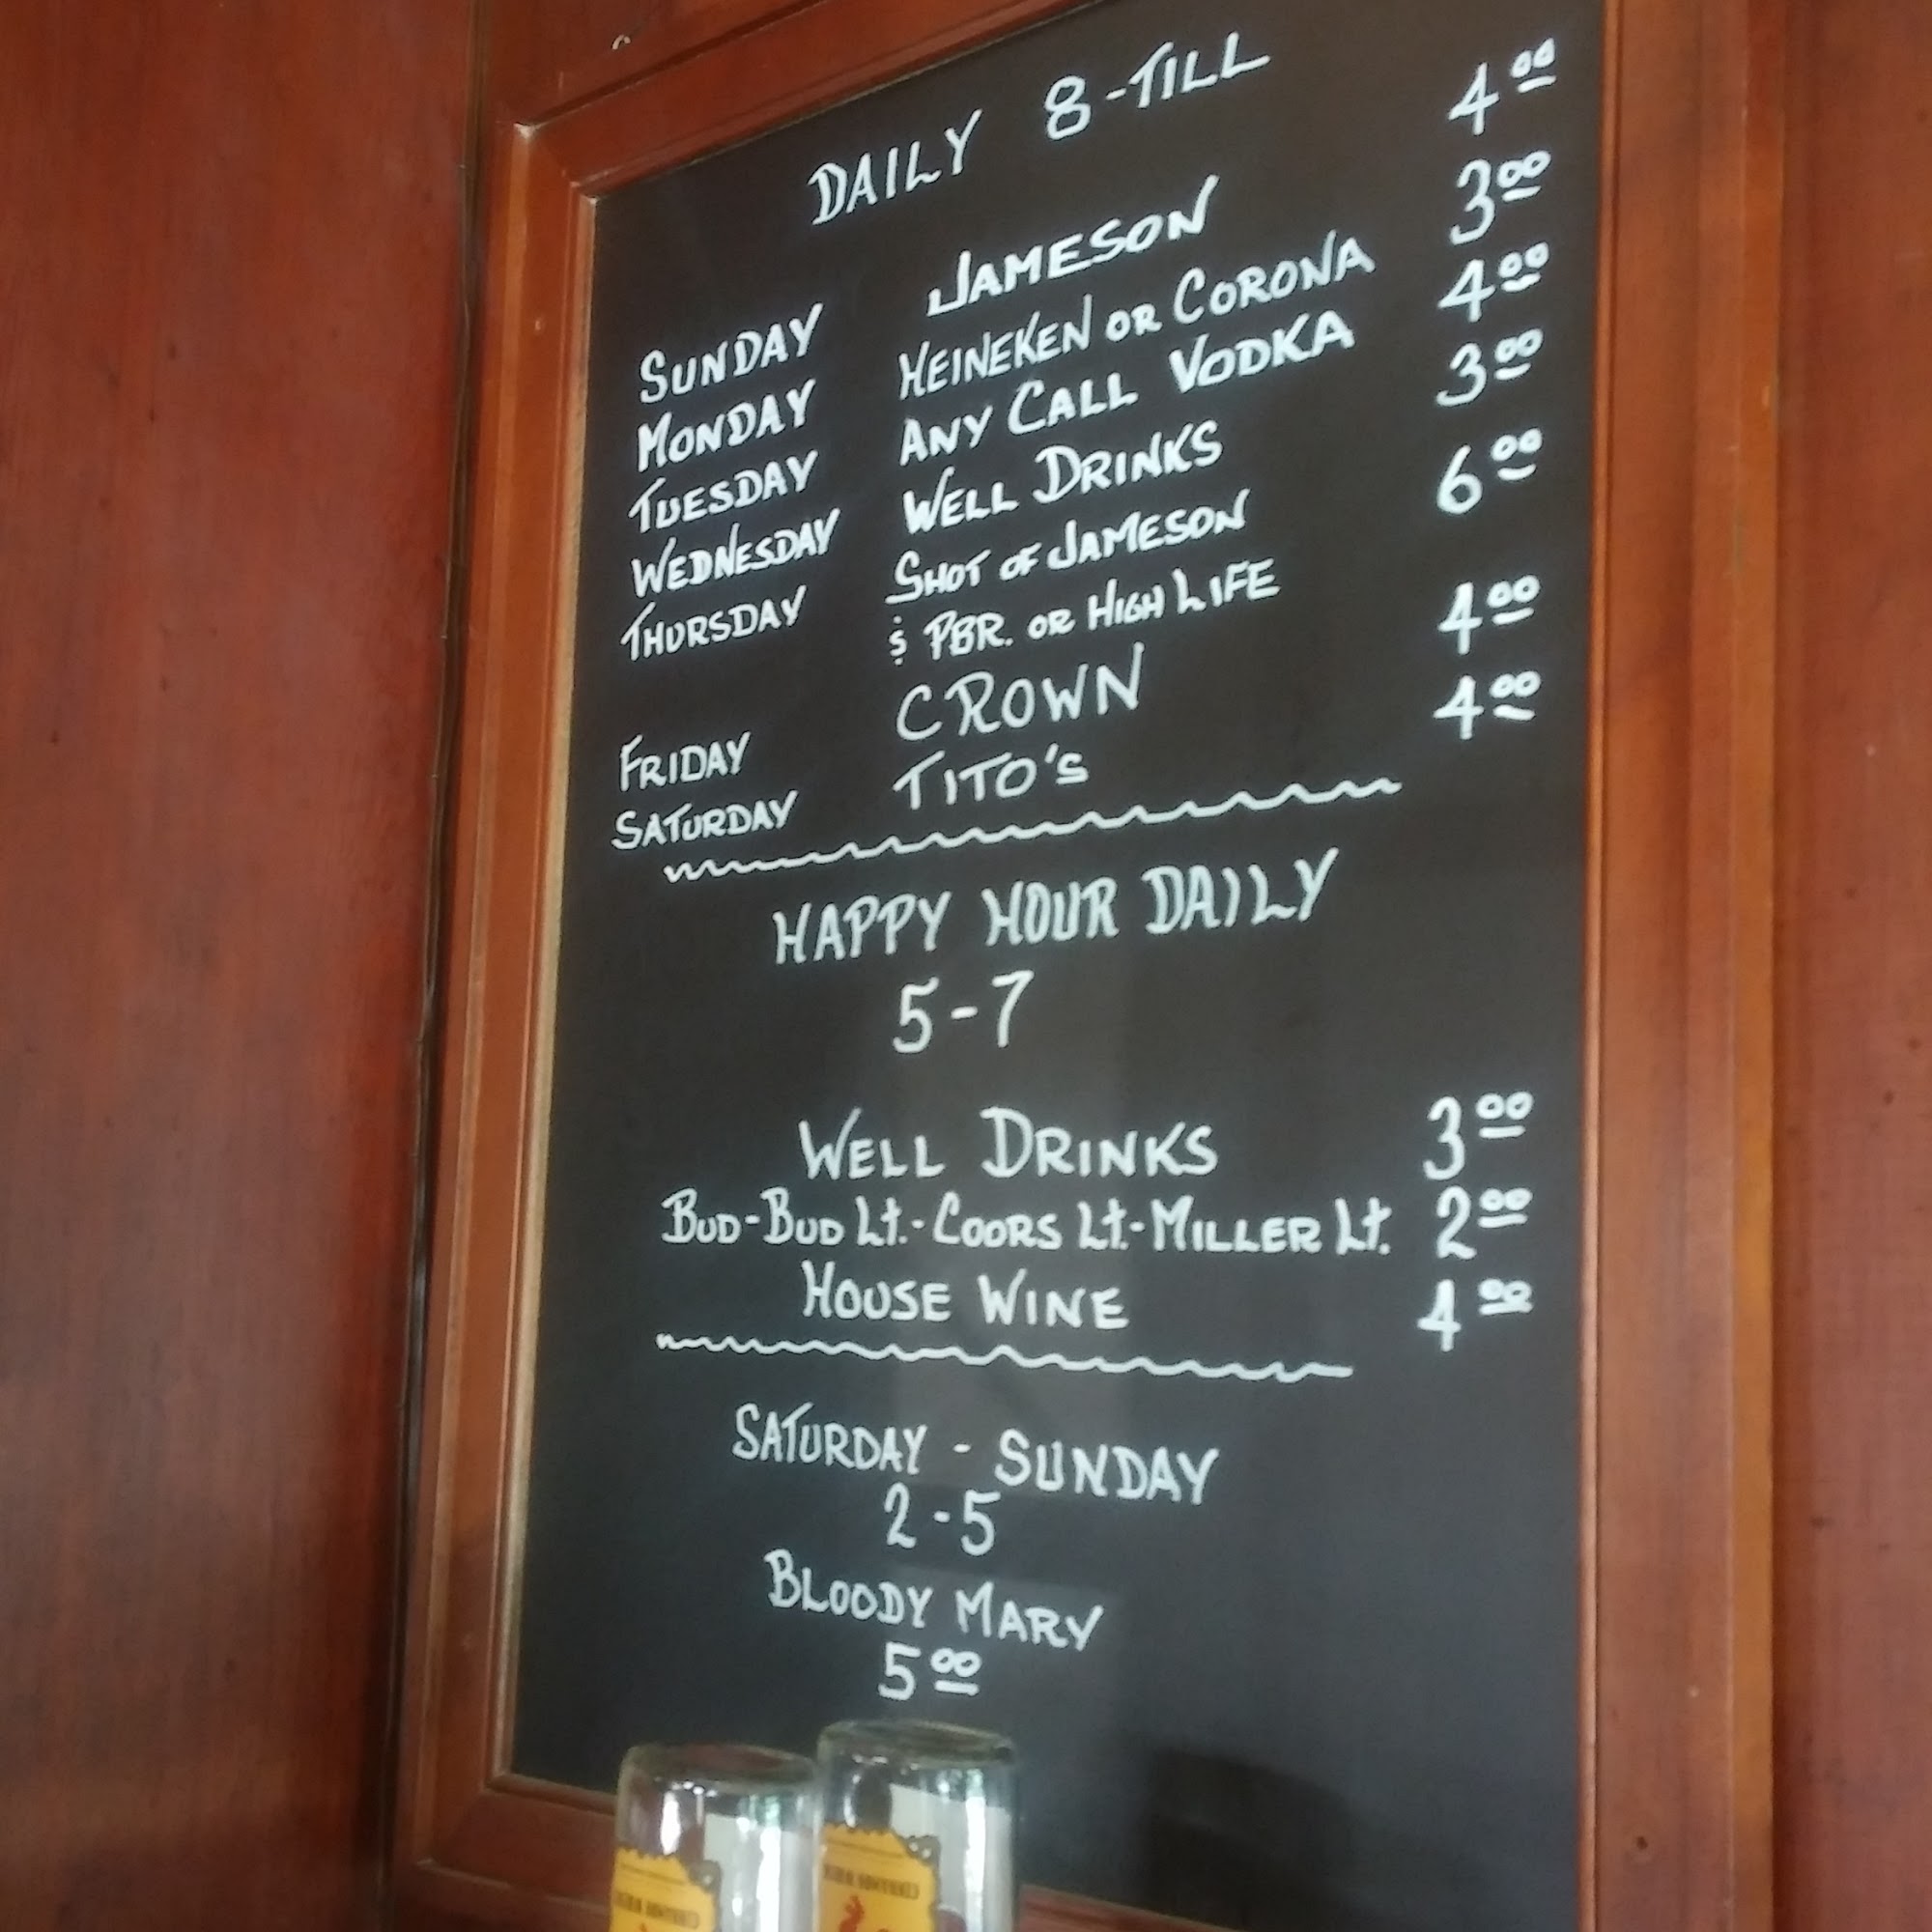 DAILY 8-TILL
SUNDAY JAMESON 4 00
MONDAY HEINEKEN OR CORONA 3 00
TUESDAY ANY CALL VODKA 4 00
WEDNESDAY WELL DRINKS 3 00
THURSDAY SHOT OF JAMESON 6 00
& PBR. OR HIGH LIFE
FRIDAY CROWN 4 00
SATURDAY TITO'S 4 00
HAPPY HOUR DAILY
5-7
WELL DRINKS 3 00
BUD-BUD Lt.-COORS Lt.-MILLER Lt. 2 00
HOUSE WINE 4 00
SATURDAY - SUNDAY
2-5
BLOODY MARY
5 00